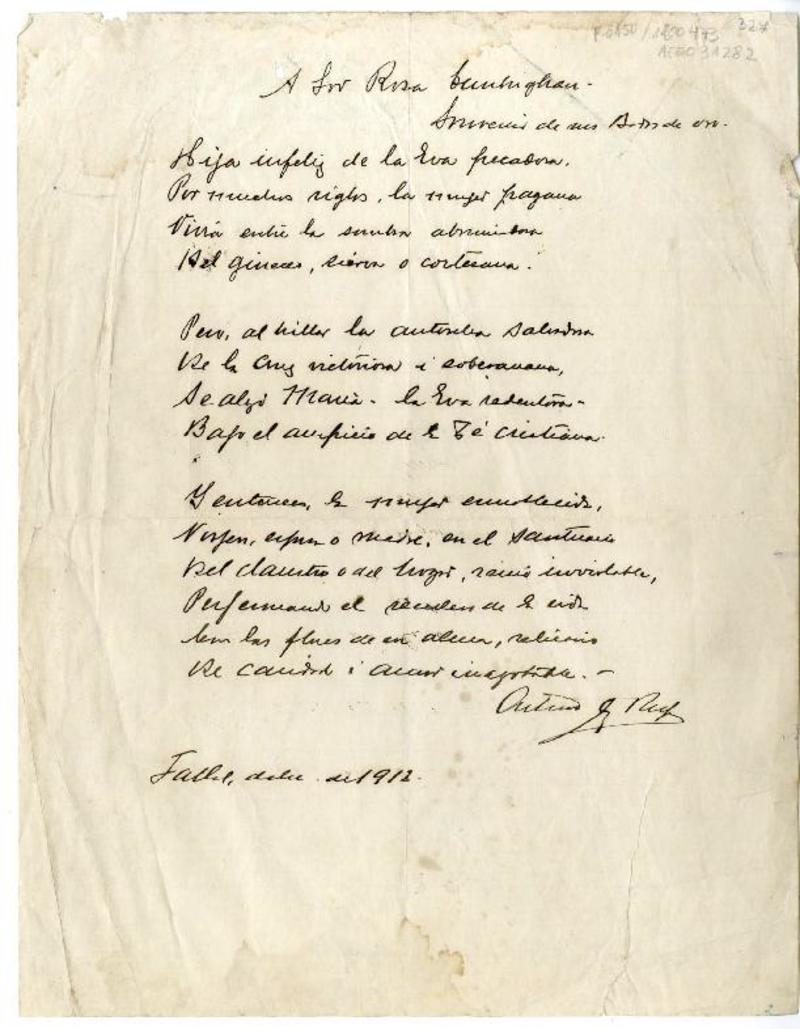 327
A Sor Rosa Cunnighan.
Souvenir de sus Bodas de oro.
Hija infeliz de la Eva pecadora,
Por muchos siglos, la mujer pagana
Vivió entre la sombra abrumadora
Del gineceo, sierva o cortesana.
Pero, al brillar la antorcha salvadora
De la Cruz victoriosa i soberanana,
Se alzó María - la Eva redentora -
Bajo el auspicio de la Fé cristiana.
Y entonces, la mujer ennoblecida,
Virjen, esposa o madre, en el santuario
Del claustro o del hogar, reinó inviolable,
Perfumando el sendero de la vida
Con las flores de su alma, relicario
De caridad i amor inagotable. -
Taltal, de 1912.